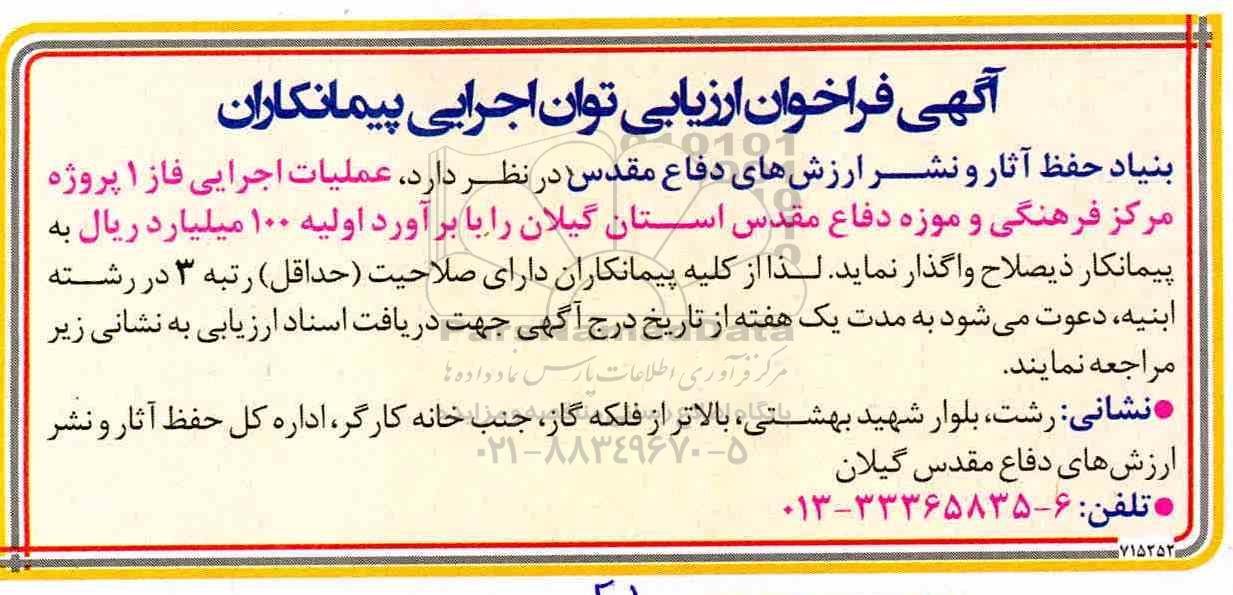 آگهی فراخوان ارزیابی توان اجرایی پیمانکاران
بنیاد حفظ آثار و نشر ارزش‌های دفاع مقدس در نظر دارد، عملیات اجرایی فاز ۱ پروژه
مرکز فرهنگی و موزه دفاع مقدس استان گیلان را با برآورد اولیه ۱۰۰ میلیارد ریال به
پیمانکار ذیصلاح واگذار نماید. لذا از کلیه پیمانکاران دارای صلاحیت (حداقل) رتبه ۳ در رشته
ابنیه، دعوت می‌شود به مدت یک هفته از تاریخ درج آگهی جهت دریافت اسناد ارزیابی به نشانی زیر
ParsNamadData
مراجعه نمایند.
مرکز فرآوری اطلاعات پارس نماد داده‌ها
● نشانی: رشت، بلوار شهید بهشتی، بالاتر از فلکه گاز، جنب خانه کارگر، اداره کل حفظ آثار و نشر
۰۲۱-۸۸۳۴۹۶۷۰-۵
ارزش‌های دفاع مقدس گیلان
● تلفن: ۶-۳۳۳۶۵۸۳۵-۰۱۳
۷۱۵۲۵۲